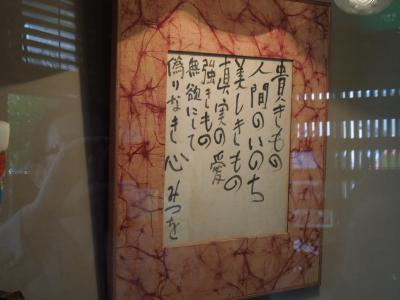 貴きもの
人間のいのち
美しきもの
真実の愛
強きもの
無欲にして
偽りなき心 みつを